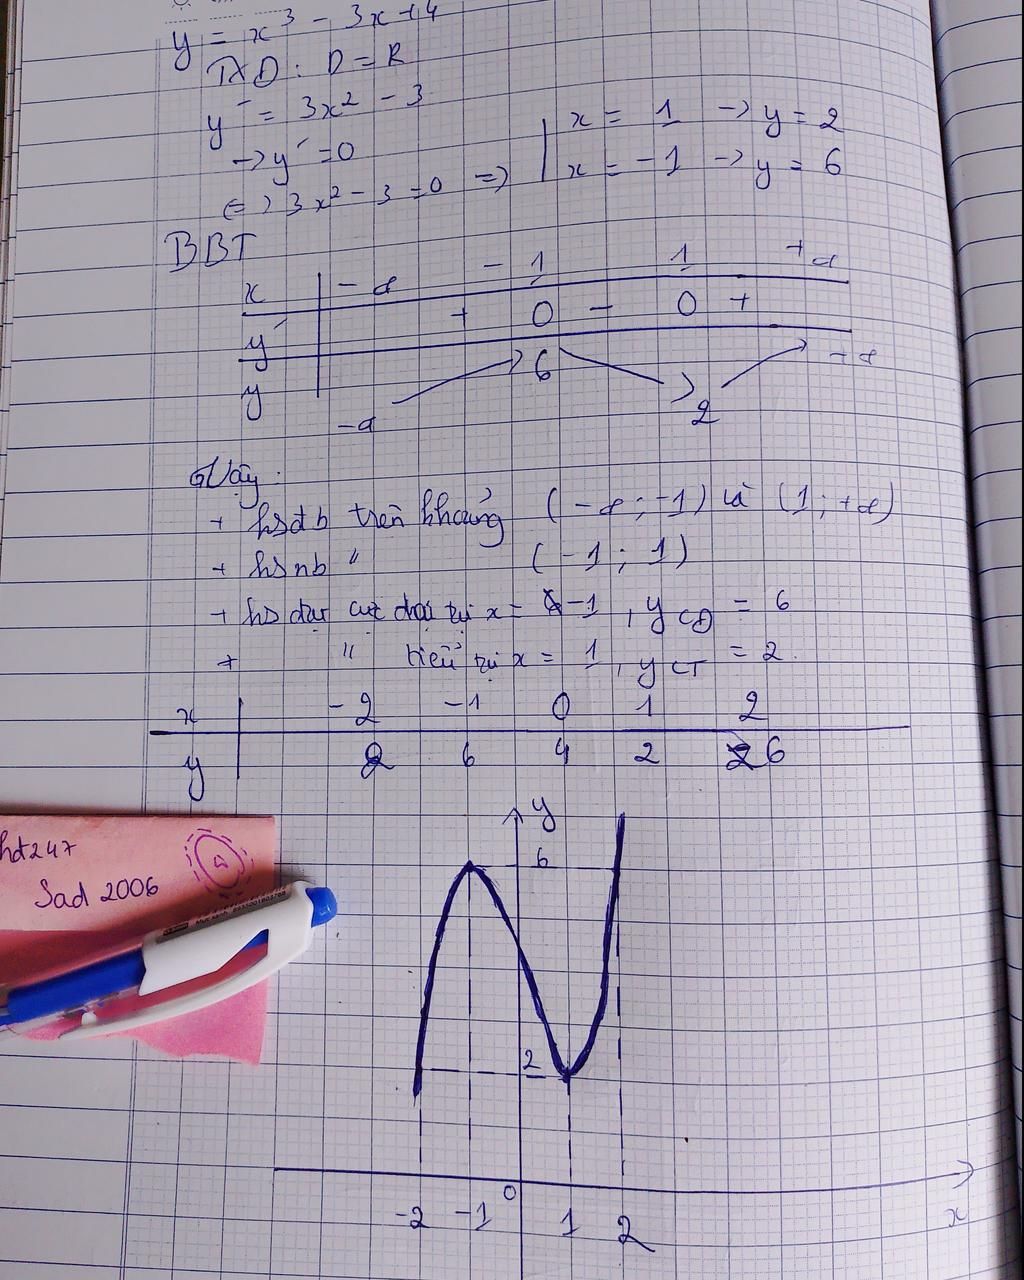 y = x³ - 3x + 4
TXD: D = R
y' = 3x² - 3
→ y' = 0
⇔ 3x² - 3 = 0 ⇒ x = 1 → y = 2
x = -1 → y = 6
BBT
x -∞ -1 1 +∞
y' + 0 - 0 +
y -∞ 6 2 +∞
Vậy:
+ hsđb trên khoảng (-∞; -1) và (1; +∞)
+ hsnb " (-1; 1)
+ hs đạt cực đại tại x = -1, y CĐ = 6
+ " tiểu tại x = 1, y CT = 2.
x -2 -1 0 1 2
y 2 6 4 2 6
hd247
Sad 2006
y
6
2
0
-2 -1 1 2
x